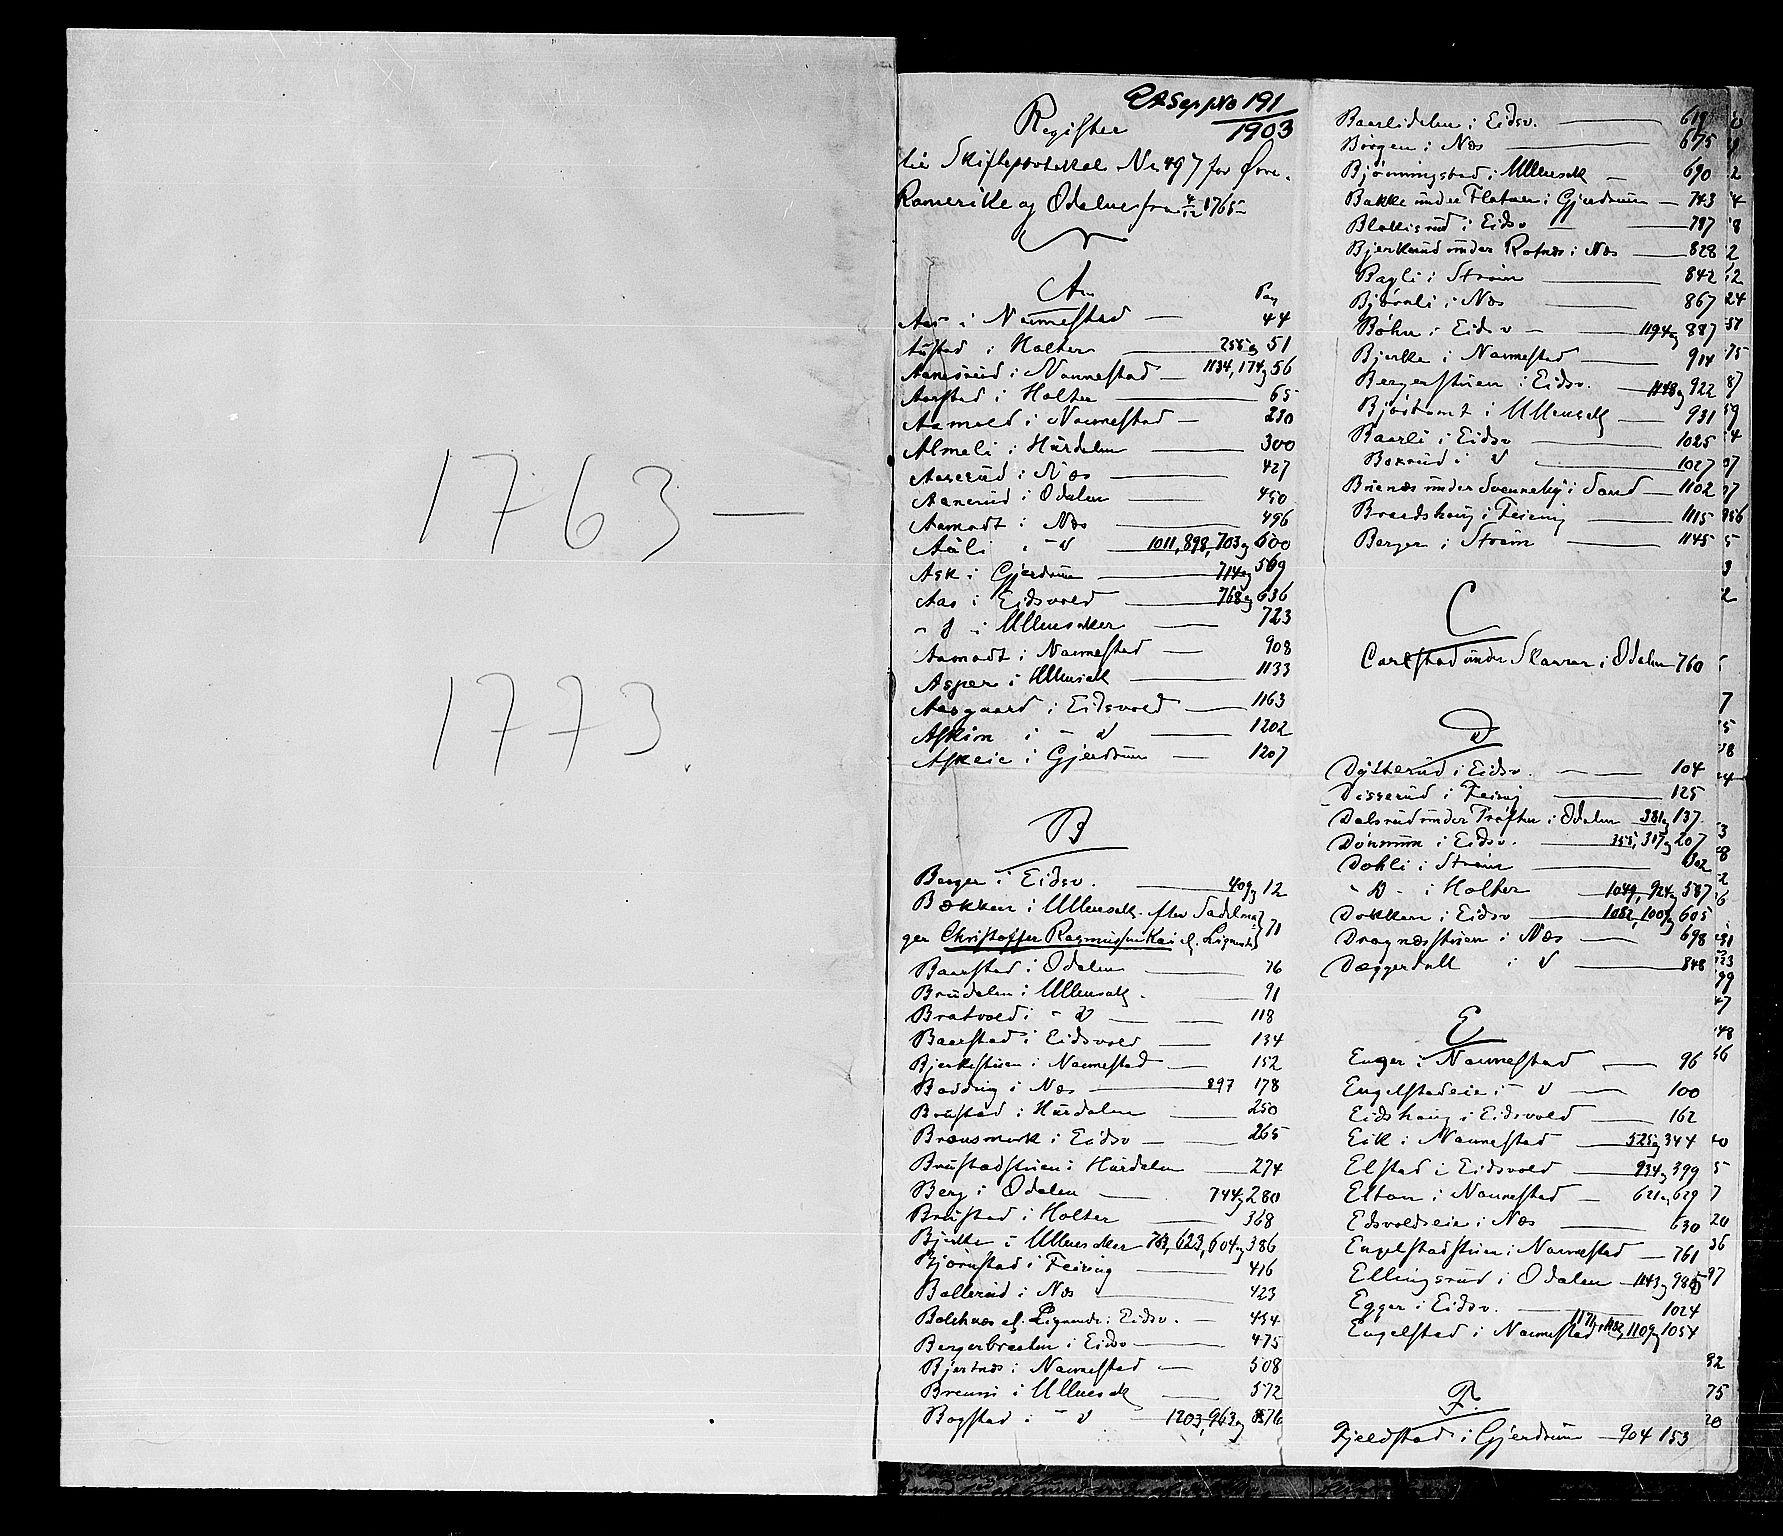 1763 —
1773.
RA Sep No 191
1903
Register
til Skifteprotokol No 497 for Øvre-
Romerike og Odalen fra 4/12 1765
A.
Pag
Aas i Nannestad — 44
Austad i Holter 255 og 51
Aamesrud i Nannestad — 1134, 174 og 56
Aarstad i Holter 65
Aamold i Nannestad — 280
Almeli i Hurdalen 300
Aaserud i Næs 427
Aanerud i Odalen 450
Aamodt i Næs 496
Aali i — d 1011, 898, 703 og 600
Ask i Gjerdrum 714 og 569
Aas i Eidsvold 768 og 636
" d — i Ullensaker 723
Aamodt i Nannestad — 908
Asper i Ullensak 1133
Aasgaard i Eidsvold — 1163
Askim i — d 1202
Askeie i Gjerdrum — 1207
B
Berger i Eidsv. 409 og 12
Bekken i Ullensak. efter Sadelma-
ger Christoffer Rasmussen Kai el. Lignende 71
Baarstad i Odalen 76
Brudalen i Ullensak. 91
Bratvold i — d 118
Baarstad i Eidsvold 134
Bjerkestuen i Nannestad 152
Bodding i Næs 897 178
Brustad i Hurdalen 250
Brænsmork i Eidsv — 265
Brustadstuen i Hurdalen 274
Berg i Odalen 744 og 280
Brustad i Holter 368
Bjerke i Ullensaker 763, 623, 604 og 386
Bjørnstad i Feiring 416
Bollerud i Næs 423
Bolchnæs el. Lignende i Eidsv. — 454
Bergerbraaten i Eidsv 475
Bjertnæs i Nannestad — 508
Brenni i Ullensak 572
Bogstad i — d 1203, 963 og 876
Baarlidalen i Eidsv. 619
Børgen i Næs 675
Bjønningstad i Ullensak 690
Bakke under Flatner i Gjerdrum — 743
Blakkisrud i Eidsv 787
Bjerkerud under Rotnæs i Næs 828
Bagli i Strøm 842
Bjørnli i Næs 867
Bøhn i Eidsv — 1194 og 887
Bjerke i Nannestad 914
Bergerstuen i Eidsv. 1148 og 922
Bjøstomt i Ullensak 931
Baarli i Eidsv 1025
Boxrud i d 1027
Buenæs under Svenneby i Sand — 1102
Braadshaug i Feiring 1115
Berger i Strøm 1145
C
Carlstad under Slarver i Odalen 760
D
Dysterud i Eidsv. 104
Disserud i Feiring 125
Dalsrud under Trøften i Odalen 381 og 137
Dønnum i Eidsv. 355, 317 og 207
Dohli i Strøm 302
" D — i Holter 1049, 924 og 587
Dokken i Eidsv 1082, 1007 og 605
Dragnæsstuen i Næs 698
Dæggerdall i d 848
E
Enger i Nannestad 96
Engelstadeie i — d 100
Eidshaug i Eidsvold 162
Eik i Nannestad 525 og 344
Elstad i Eidsvold 934 og 399
Elton i Nannestad — 621 og 629
Edsvoldseie i Næs 630
Engelstadstuen i Nannestad — 761
Ellingsrud i Odalen 1143 og 985
Egger i Eidsv. 1024
Engelstad i Nannestad 1171, 1182, 1109 og 1054
F.
Fjeldstad i Gjerdrum — 904 153